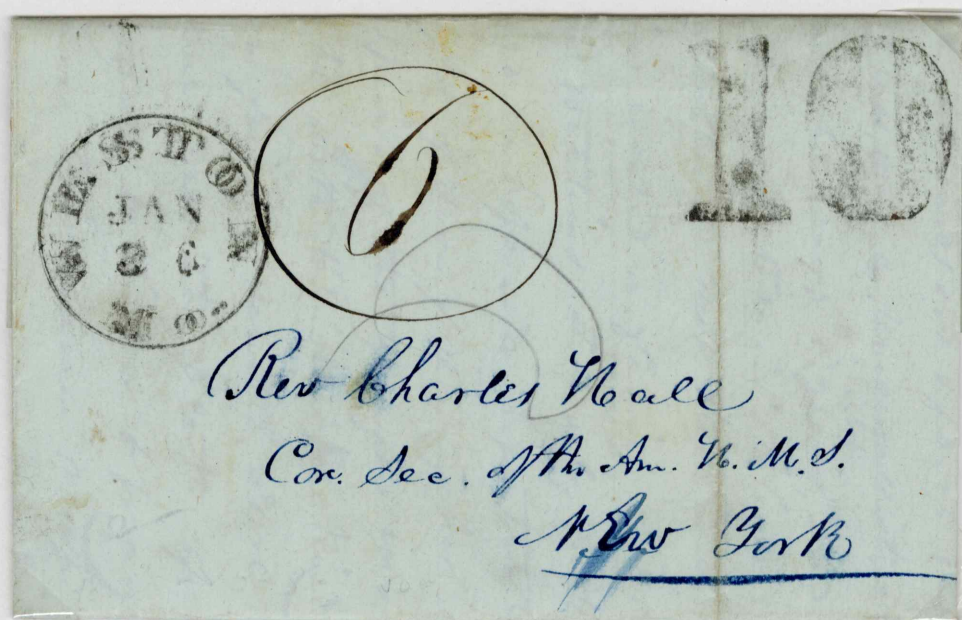 WESTON
JAN
26
Mo.
10
Rev Charles Hall
Cor. Sec. of the Am. H. M. S.
New York